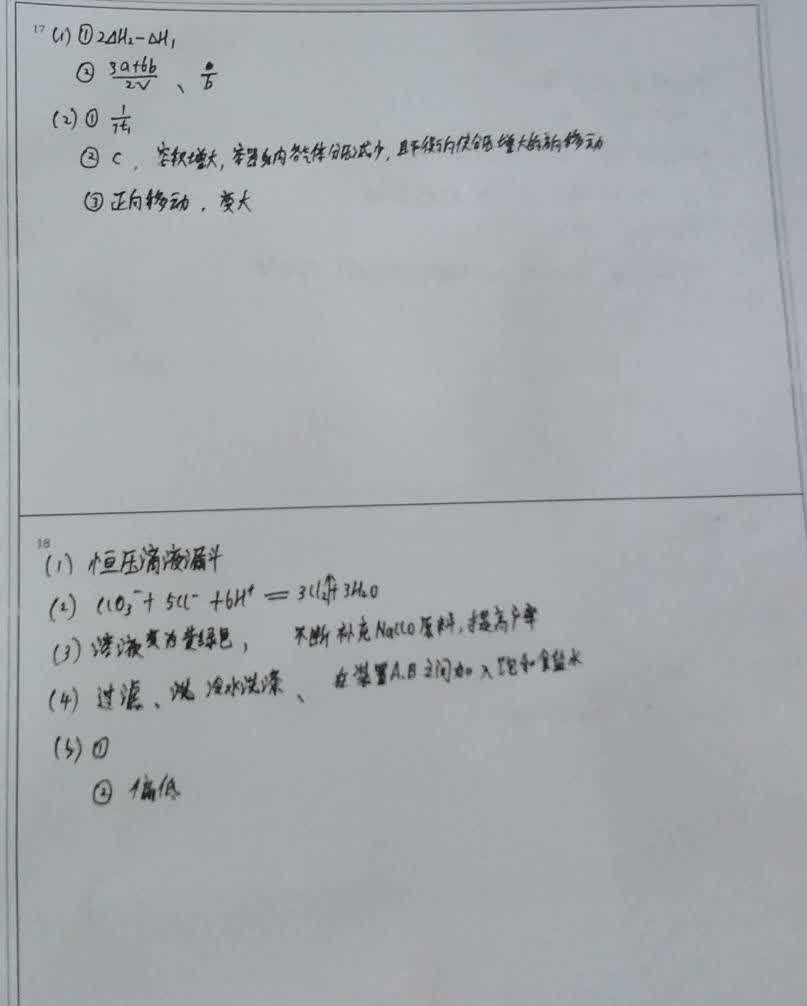 17 (1) ① 2ΔH₂-ΔH₁
② (3a+6b)/2V 、 a/b
(2) ① 1/7t₁
② C ，容积增大，容器内各气体分压减少，且平衡向使分压增大的方向移动
③ 正向移动 ，变大
18
(1) 恒压滴液漏斗
(2) ClO₃⁻ + 5Cl⁻ + 6H⁺ = 3Cl₂↑+3H₂O
(3) 溶液变为黄绿色， 不断补充NaClO原料，提高产率
(4) 过滤、冷水洗涤 、 在装置A.B之间加入饱和食盐水
(5) ①
② 偏低